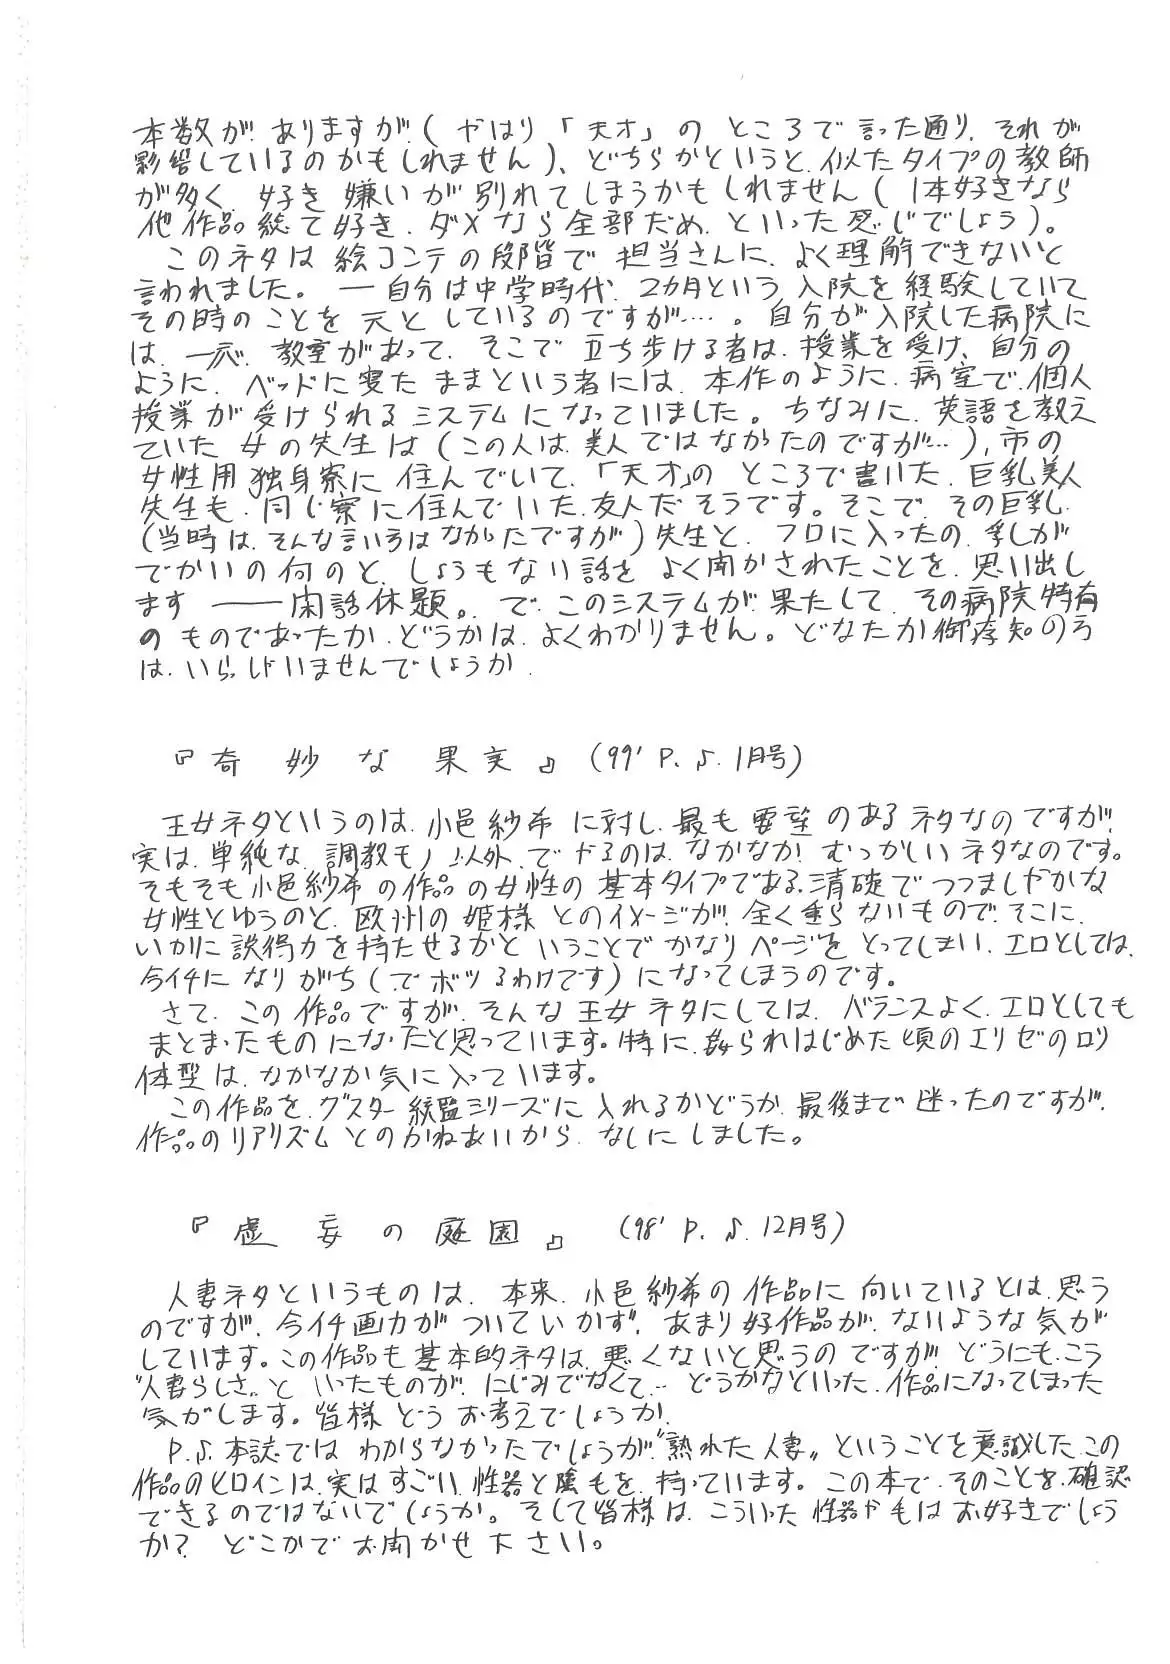 本数が、ありますが(やはり「天才」のところで言った通り、それが
影響しているのかもしれません)、どちらかというと、似たタイプの教師
が多く、好き嫌いが別れてしまうかもしれません(1本好きなら
他作品総て好き、ダメなら全部だめ、といった感じでしょう)。
このネタは絵コンテの段階で担当さんに、よく理解できないと
言われました。―自分は中学時代、2カ月という入院を経験していて
その時のことを元としているのですが…。自分が入院した病院に
は、一応、教室があって、そこで立ち歩ける者は、授業を受け、自分の
ように、ベッドに寝たままという者には、本作のように、病室で、個人
授業が受けられるシステムになっていました。ちなみに、英語を教え
ていた女の先生は(この人は、美人ではなかったのですが…)、市の
女性用独身寮に住んでいて、「天才」のところで書いた、巨乳美人
先生も、同じ寮に住んでいた、友人だそうです。そこで、その巨乳
(当時は、そんな言いろはなかったですが)先生と、フロに入ったの、乳が
でかいの何のと、しょうもない話をよく聞かされたことを、思い出し
ます――閑話休題。で、このシステムが、果たして、その病院特有
のものであったか、どうかは、よくわかりません。どなたか御存知の方
は、いらっしゃいませんでしょうか、
『奇妙な果実』(99' P.♪.1月号)
王女ネタというのは、小邑紗希に対し、最も要望のあるネタなのですが、
実は、単純な、調教モノ以外、でやるのは、なかなか、むっかしいネタなのです。
そもそも小邑紗希の作品の女性の基本タイプである、清礎でつつましやかな
女性とゆうのと、欧州の姫様とのイメージが、全く重らないもので、そこに、
いかに説得力を持たせるかということでかなりページをとってしまい、エロとしては、
今イチになりがち(、でボツるわけです)になってしまうのです。
さて、この作品ですが、そんな王女ネタにしては、バランスよく、エロとしても
まとまったものになったと思っています。特に、姦られはじめた頃のエリゼのロリ
体型は、なかなか気に入っています。
この作品を、グスター総監シリーズに入れるかどうか、最後まで迷ったのですが、
作品のリアリズムとのかねあいから、なしにしました。
『虚妄の庭園』(98' P.♪.12月号)
人妻ネタというものは、本来、小邑紗希の作品に向いているとは、思う
のですが、今イチ画力がついていかず、あまり好作品が、ないような気が
しています。この作品も基本的ネタは、悪くないと思うのですが、どうにも、こう
"人妻らしさ"といったものが、にじみでなくて…どうかなといった、作品になってしまった
気がします。皆様どうお考えでしょうか、
P.♪.本誌ではわからなかったでしょうが"熟れた人妻"ということを意識した、この
作品のヒロインは、実はすごい、性器と陰毛を、持っています。この本で、そのことを、確認
できるのではないでしょうか。そして皆様は、こういった性器や毛はお好きでしょう
か？ どこかでお聞かせ下さい。